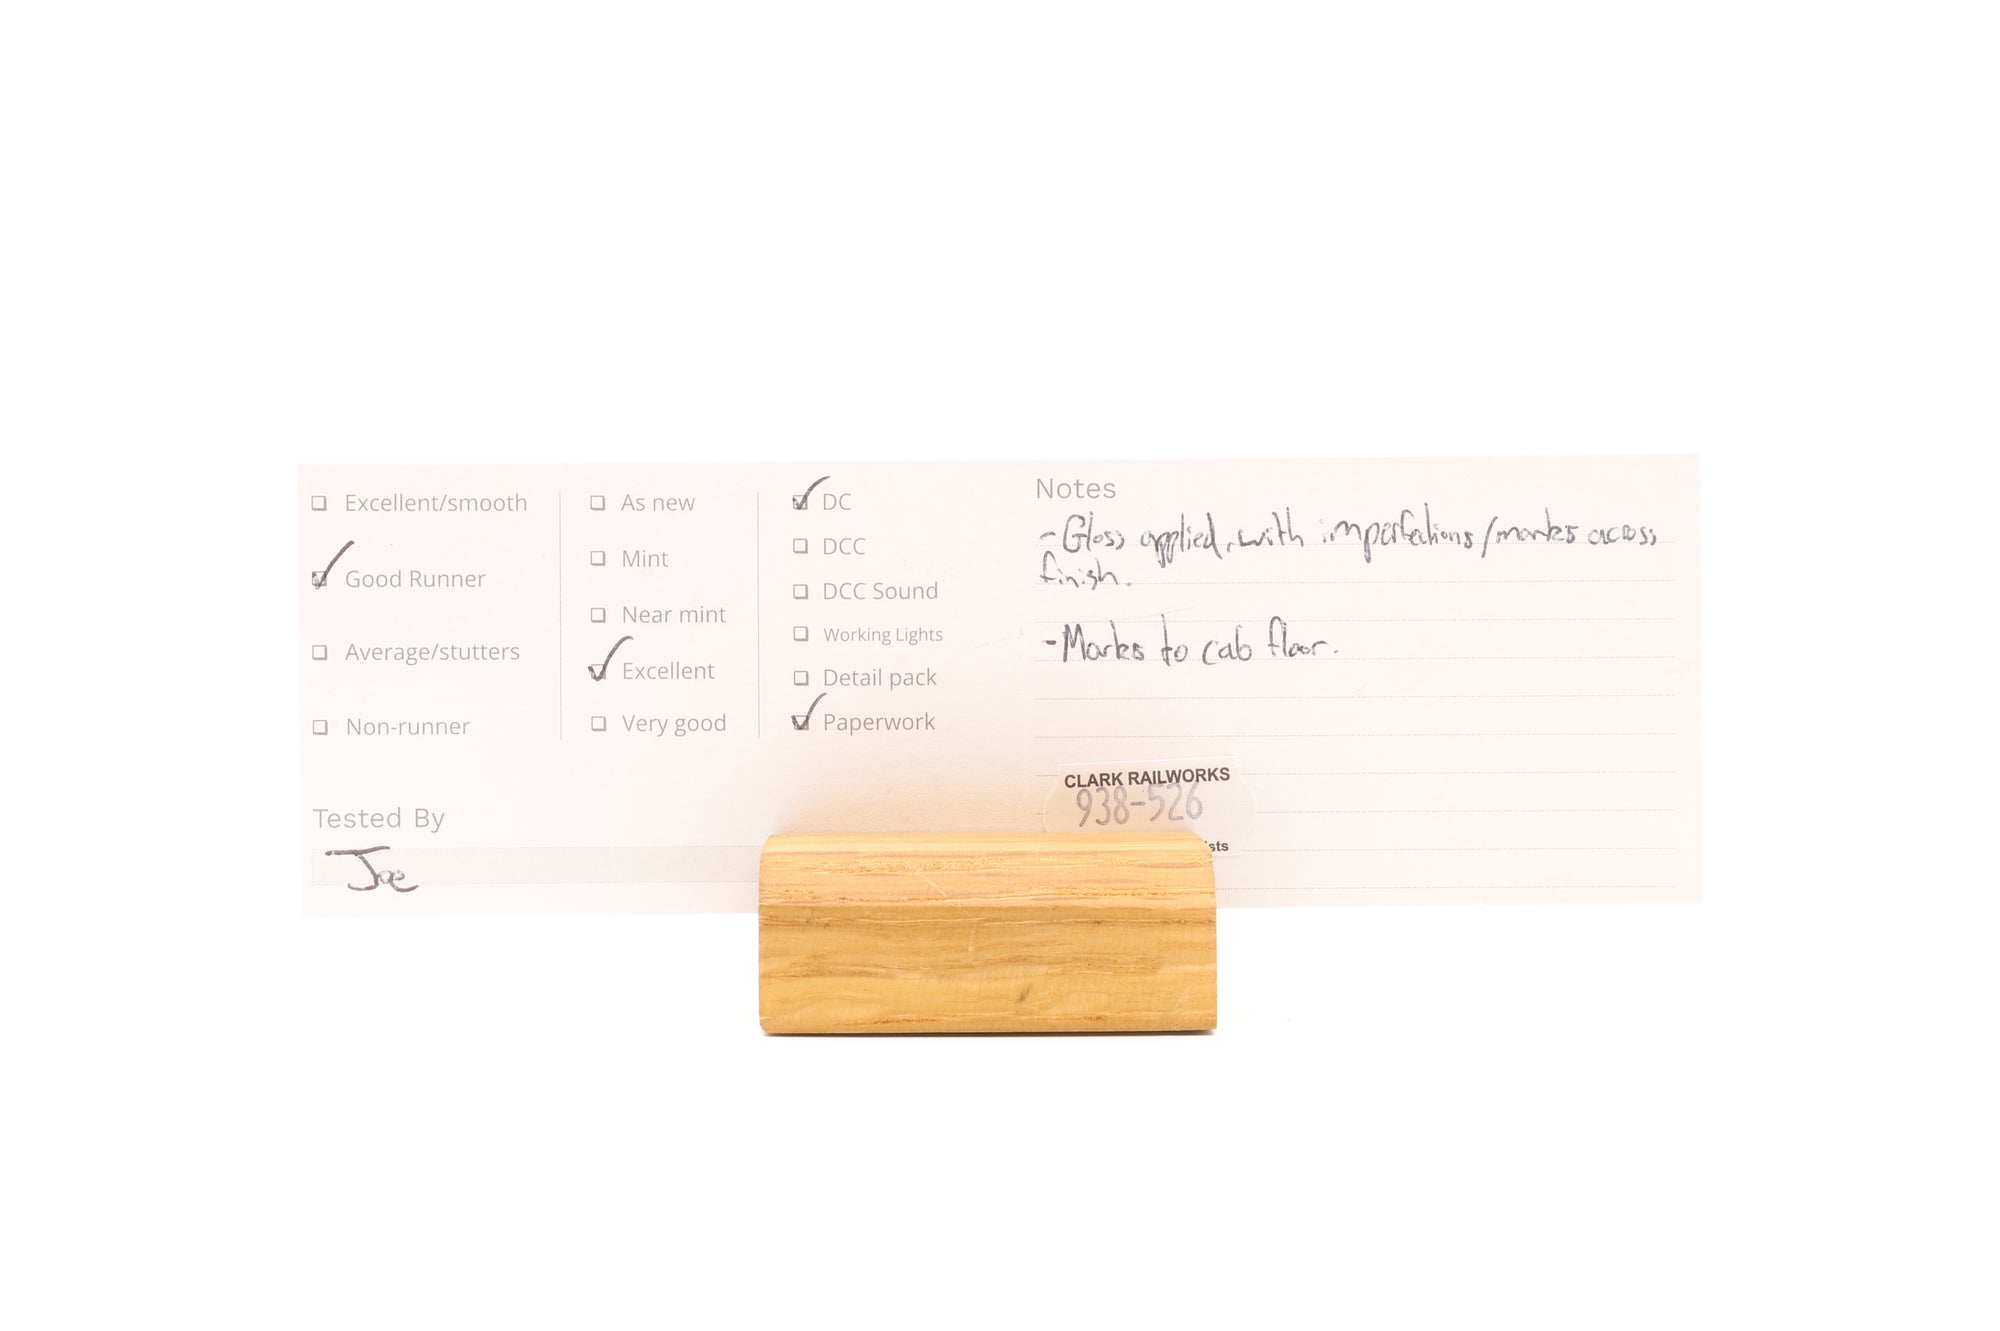 Excellent/smooth
Good Runner
Average/stutters
Non-runner
As new
Mint
Near mint
Excellent
Very good
DC
DCC
DCC Sound
Working Lights
Detail pack
Paperwork
Tested By
Joe
Notes
- Gloss applied, with imperfections/marks across
finish.
- Marks to cab floor.
CLARK RAILWORKS
938-526